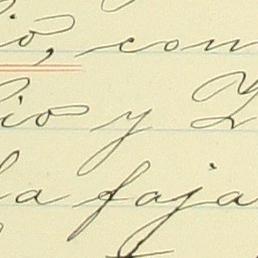 io, con
io y L
la faja